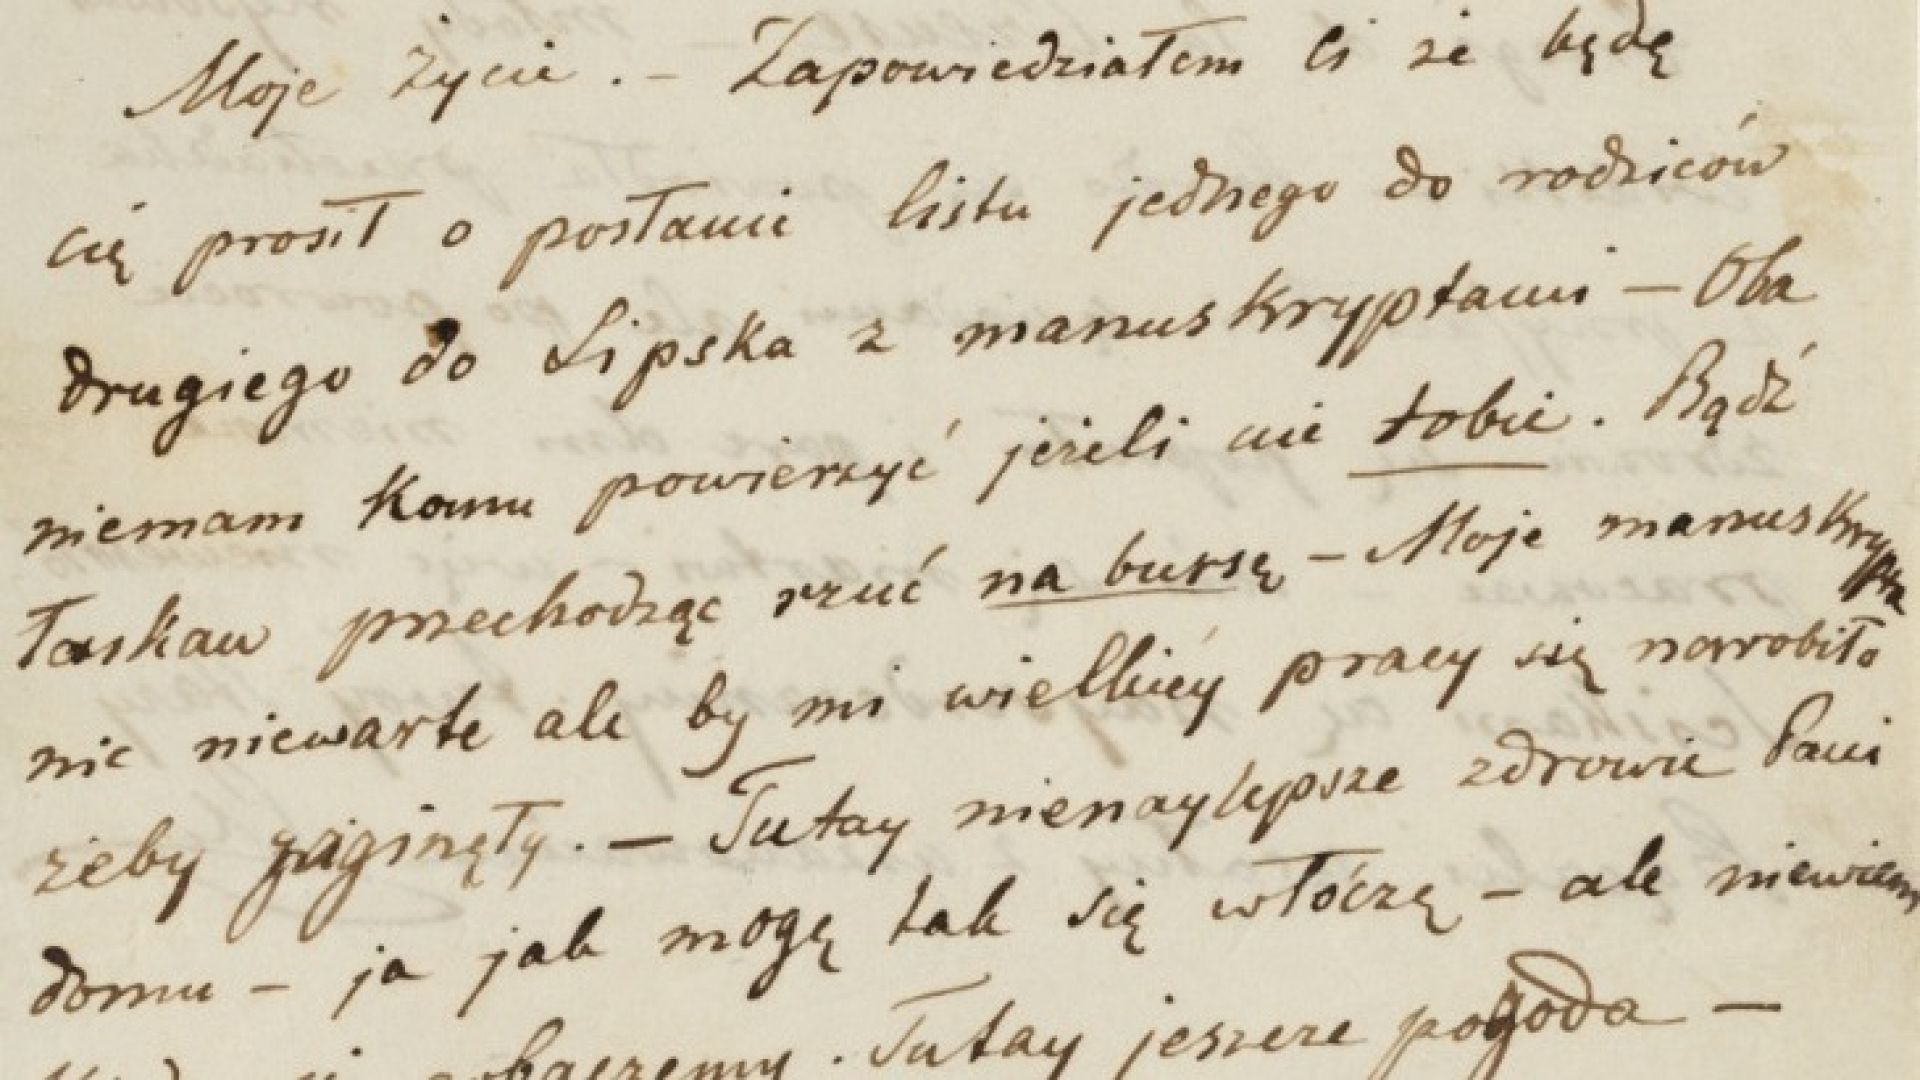 Moje życie. – Zapowiedziałem Ci że będę
cię prosił o posłanie listu jednego do rodziców
drugiego do Lipska z manuskryptami – Oba
niemam komu powierzyć jeżeli nie tobie. Bądź
łaskaw przechodząc rzuć na bursę – Moje manuskrypta
nic niewarte ale by mi wielkiey pracy się narobiło
żeby zaginęły. – Tutay nienaylepsze zdrowie Pani
domu – ja jak mogę tak się włóczę – ale niewiem
się zobaczemy. Tutay jeszcze pogoda –